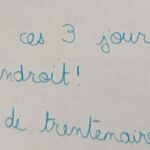 ces 3 jour
ndroit!
de trentenair